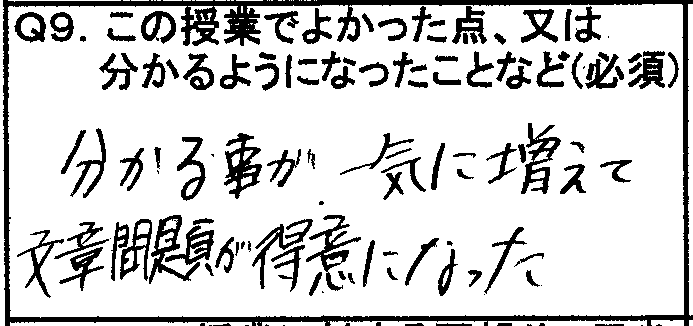 Q9. この授業でよかった点、又は
分かるようになったことなど(必須)
分かる事が一気に増えて
文章問題が得意になった